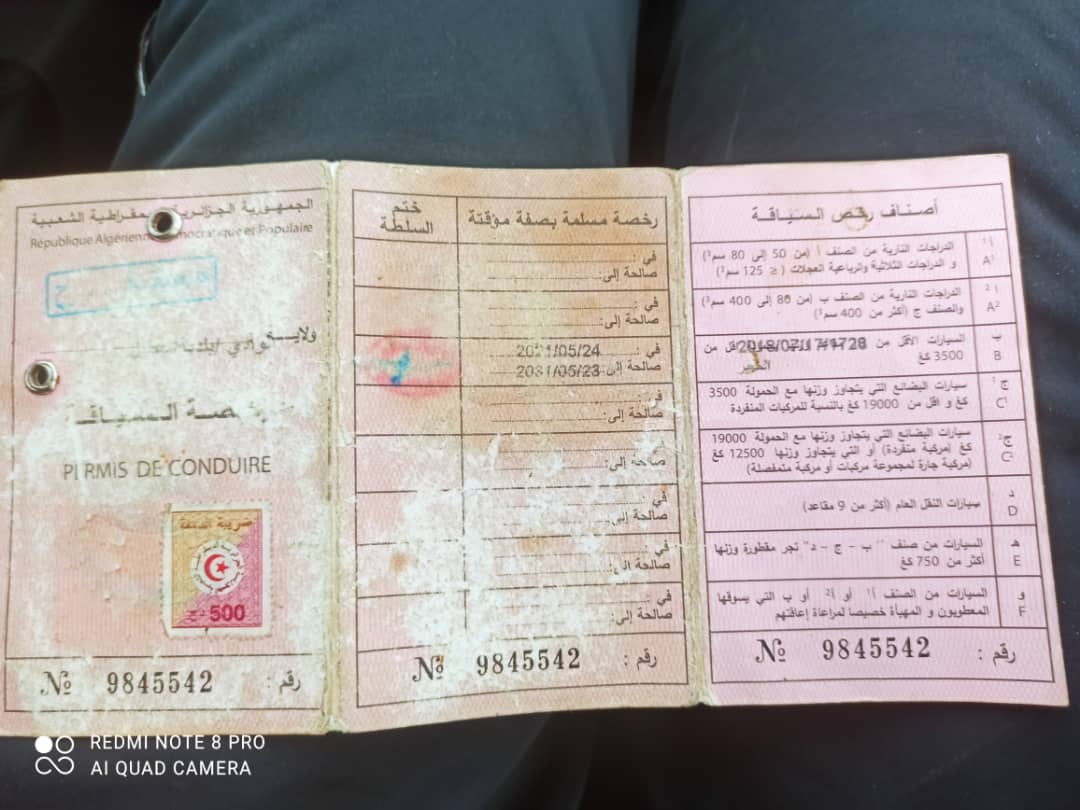 الجمهورية الجزائرية الديمقراطية الشعبية
République Algérienne Démocratique et Populaire
ولاية
رخصة السياقة
PERMIS DE CONDUIRE
ضريبة الدمغة
500 دج
رقم : 9845542 №
رخصة مسلمة بصفة مؤقتة
ختم السلطة
في :
صالحة إلى:
في :
صالحة إلى:
في : 2021/05/24
صالحة إلى: 2031/05/23
في :
صالحة إلى:
صالحة إلى:
في :
صالحة إلى:
في :
صالحة
في :
صالحة إلى:
رقم : 9845542 №
أصناف رخص السياقة
أ¹ A¹ الدراجات النارية من الصنف أ (من 50 إلى 80 سم³)
و الدراجات الثلاثية والرباعية العجلات (≥ 125 سم³)
أ² A² الدراجات النارية من الصنف ب (من 80 إلى 400 سم³)
والصنف ج (أكثر من 400 سم³)
ب B السيارات الأقل من
3500 كغ
ج¹ C¹ سيارات البضائع التي يتجاوز وزنها مع الحمولة 3500
كغ و اقل من 19000 كغ بالنسبة للمركبات المنفردة
ج² C² سيارات البضائع التي يتجاوز وزنها مع الحمولة 19000
كغ (مركبة منفردة) أو التي يتجاوز وزنها 12500 كغ
(مركبة جارة لمجموعة مركبات أو مركبة متمفصلة)
د D سيارات النقل العام (أكثر من 9 مقاعد)
هـ E السيارات من صنف "ب - ج - د" تجر مقطورة وزنها
أكثر من 750 كغ
و F السيارات من الصنف أ¹ أو أ² أو ب التي يسوقها
المعطوبون و المهيأة خصيصا لمراعاة إعاقتهم
رقم : 9845542 №
REDMI NOTE 8 PRO
AI QUAD CAMERA